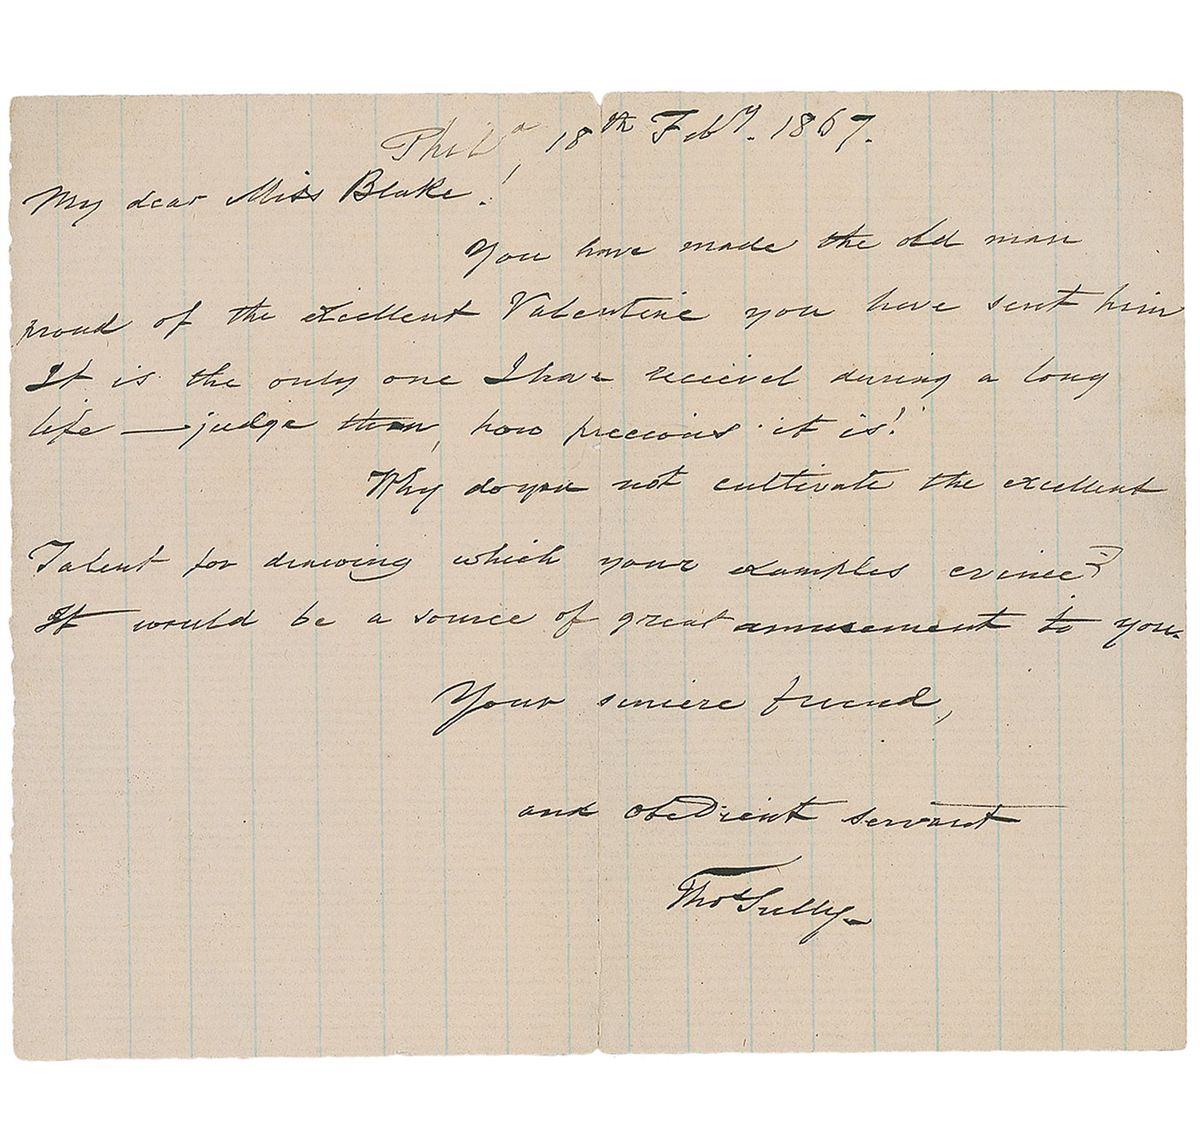 Phila, 18th Feby. 1867.
My dear Miss Blake!
You have made the old man
proud of the excellent Valentine you have sent him
It is the only one I have received during a long
life — judge then, how precious it is!
Why do you not cultivate the excellent
Talent for drawing which your examples evince?
It would be a source of great amusement to you.
Your sincere friend,
and obedient servant
Thos Sully